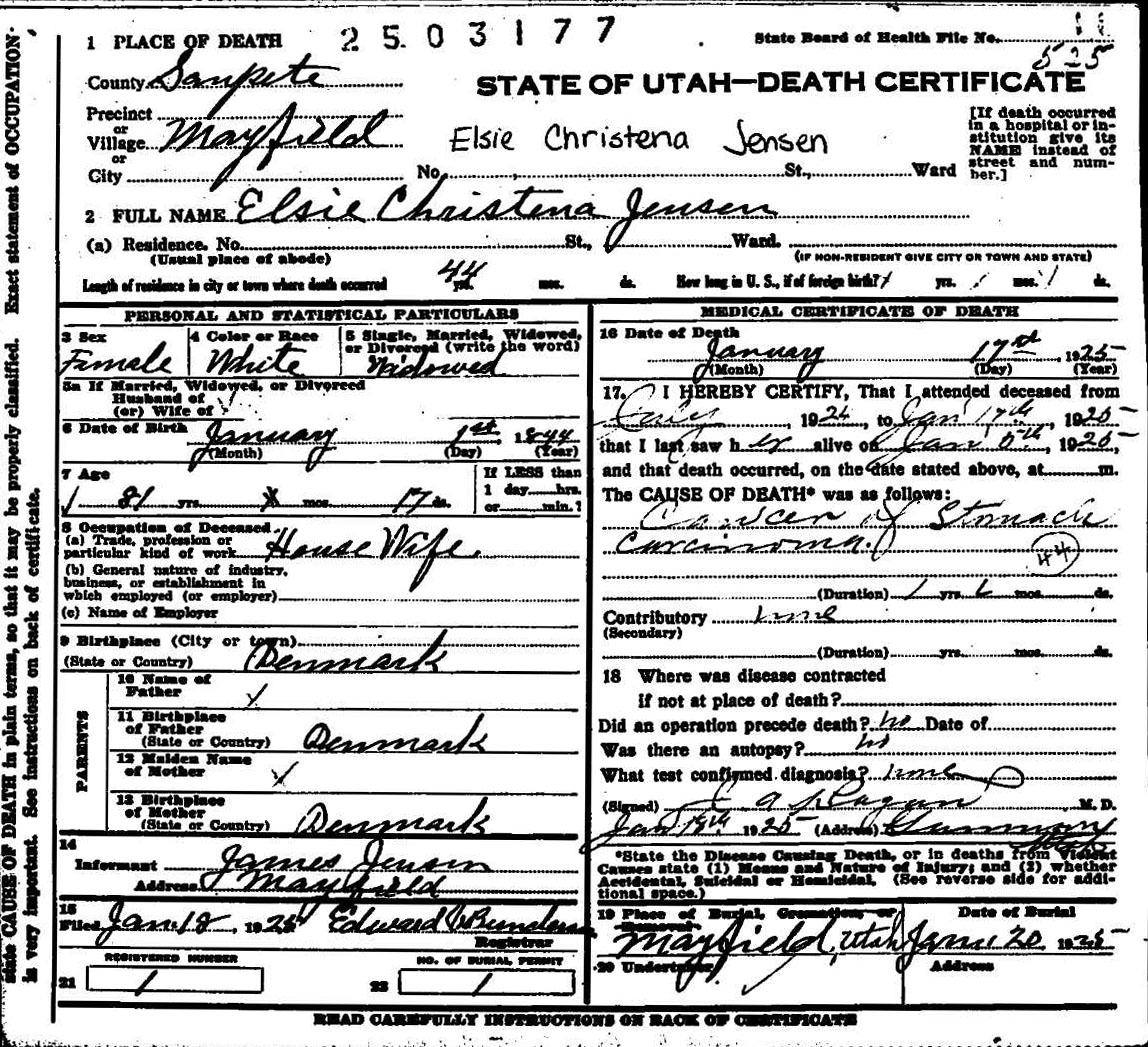 1 PLACE OF DEATH 2503177 State Board of Health File No. 11
525
County Sanpete
STATE OF UTAH—DEATH CERTIFICATE
Precinct
or
Village Mayfield
or
City No. St., Ward
Elsie Christena Jensen
[If death occurred
in a hospital or in-
stitution give its
NAME instead of
street and num-
ber.]
2 FULL NAME Elsie Christena Jensen
(a) Residence. No. St., Ward.
(Usual place of abode) (IF NON-RESIDENT GIVE CITY OR TOWN AND STATE)
Length of residence in city or town where death occurred 44 yrs. mos. ds. How long in U. S., if of foreign birth? yrs. mos. ds.
PERSONAL AND STATISTICAL PARTICULARS
3 Sex
Female
4 Color or Race
White
5 Single, Married, Widowed,
or Divorced (write the word)
Widowed
5a If Married, Widowed, or Divorced
Husband of
(or) Wife of
6 Date of Birth January 1st, 1844
(Month) (Day) (Year)
7 Age
81 yrs. X mos. 17 ds.
If LESS than
1 day hrs.
or min.?
8 Occupation of Deceased
(a) Trade, profession or
particular kind of work House Wife.
(b) General nature of industry,
business, or establishment in
which employed (or employer)
(c) Name of Employer
9 Birthplace (City or town)
(State or Country) Denmark
PARENTS
10 Name of
Father
11 Birthplace
of Father
(State or Country) Denmark
12 Maiden Name
of Mother
13 Birthplace
of Mother
(State or Country) Denmark
14
Informant James Jensen
Address Mayfield
15
Filed Jan. 18, 1925 Edward
Registrar
REGISTERED NUMBER
21 1
NO. OF BURIAL PERMIT
22 1
MEDICAL CERTIFICATE OF DEATH
16 Date of Death
January 17th, 1925
(Month) (Day) (Year)
17. I HEREBY CERTIFY, That I attended deceased from
, 1924, to Jan 17th, 1925
that I last saw her alive on Jan , 1925,
and that death occurred, on the date stated above, at m.
The CAUSE OF DEATH* was as follows:
Cancer of Stomach
Carcinoma.
44
(Duration) 1 yrs. 6 mos. ds.
Contributory none
(Secondary)
(Duration) yrs. mos. ds.
18 Where was disease contracted
if not at place of death?
Did an operation precede death? no Date of
Was there an autopsy? no
What test confirmed diagnosis? none
(Signed) Hagan M. D.
Jan 18th 1925 (Address) Gunnison
Utah
*State the Disease Causing Death, or in deaths from Violent
Causes state (1) Means and Nature of Injury; and (2) whether
Accidental, Suicidal or Homicidal. (See reverse side for addi-
tional space.)
19 Place of Burial, Cremation, or
Removal
Mayfield, Utah
Date of Burial
Jan. 20, 1925
20 Undertaker Address
READ CAREFULLY INSTRUCTIONS ON BACK OF CERTIFICATE
state CAUSE OF DEATH in plain terms, so that it may be properly classified. Exact statement of OCCUPATION
is very important. See instructions on back of certificate.